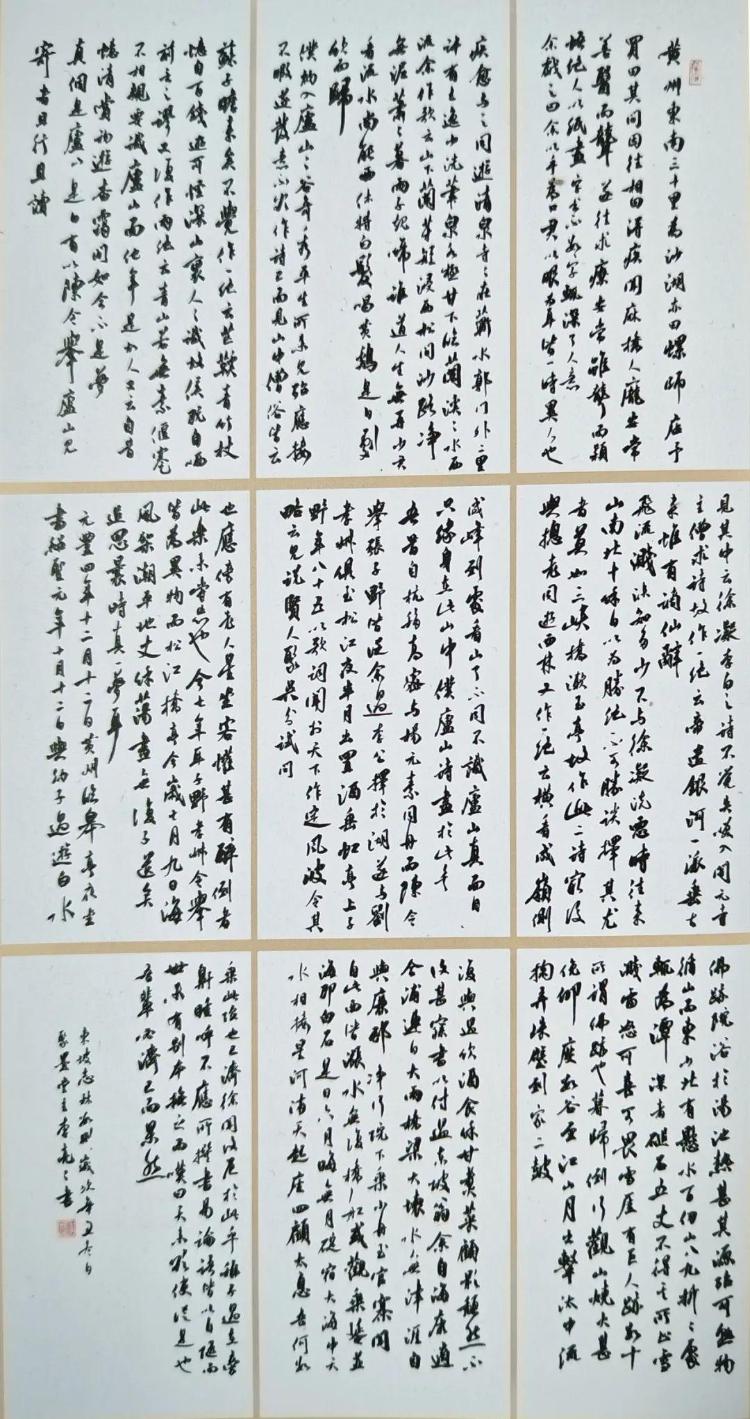 黄州東南三十里为沙湖亦曰螺师店予
買田其间因往相田得疾闻麻橋人龐安常
善醫而聾遂往求療安常雖聾而颖
悟绝人以纸畫字书不数字輒深了人意
余戲之曰余以手为口君以眼为耳皆一時異人也
疾愈与之同遊清泉寺寺在蕲水郭门外二里
许有王逸少洗筆泉水極甘下临蘭溪溪水西
流余作歌云山下蘭芽短浸溪松间沙路净
無泥萧萧暮雨子规啼谁道人生無再少君
看流水尚能西休将白髮唱黄鷄是日劇
饮而歸
僕初入廬山山谷奇秀平生所未见殆應接
不暇遂發意不欲作诗已而见山中僧俗皆云
蘇子瞻来矣不覺作一绝云芒鞋青竹杖
自百錢遊可怪深山裏人人識故侯既自哂
前言之谬又复作两绝云青山若無素偃蹇
不相親要識廬山面他年是故人又云自昔
憶清赏初遊杳霭间如今不是夢
真個是廬山是日有以陳令舉廬山记
寄者且行且讀
见其中云徐凝李白之诗不覺失笑入開元寺
主僧求诗故作一绝云帝遣銀河一派垂古
来惟有谪仙辭
飛流濺沫知多少不与徐凝洗惡時往来
山南北十餘日以为勝绝不可勝談擇其尤
者莫如三峡橋漱玉亭故作此二诗最後
與摠老同遊西林又作一绝云横看成嶺側
成峰到處看山了不同不識廬山真面目
只缘身在此山中僕廬山诗盡於此矣
吾昔自杭移高密与楊元素同舟而陳令
舉張子野皆從余過李公擇於湖遂与劉
孝叔俱至松江夜半月出置酒垂虹亭上子
野年八十五以歌詞聞於天下作定风波令其
略云见说賢人聚吴分试问
也應傍有老人星坐客懽甚有醉倒者
此樂未嘗忘也今七年耳子野孝叔令舉
皆为異物而松江橋亭今歲七月九日海
风架潮平地丈餘蕩盡無復孑遺矣
追思曩時真一夢耳
元豐四年十二月十二日黄州临皋亭夜坐
書紹聖元年十月十二日與幼子過遊白水
佛跡院浴於湯池熱甚其源殆可熟物
循山而東少北有懸水百仞山八九折折處
輒为潭深者磓石五丈不得其所止雪
濺雷怒可喜可畏雪崖有巨人跡数十
所謂佛跡也暮歸倒行觀山燒火甚
俛仰度数谷至江山月出擊汰中流
掬弄珠璧到家二鼓
復與過饮酒食餘甘煮菜顧影颓然不
復甚寐書以付過東坡翁余自海康適
合浦連日大雨橋梁大壞水無津涯自
興廉邨净行院下乘小舟至官寨聞
自此西皆漲水無復橋船或勸乘蜑並
海即白石是日六月晦無月碇宿大海中天
水相接星河满天起坐四顧太息吾何数
乘此险也已濟徐聞復厄於此乎稚子過在旁
鼾睡呼不應所撰書易論語皆以自随而
世未有别本撫之而嘆曰天未欲使從是也
吾輩必濟已而果然
東坡志林数则歲次辛丑冬日
聚墨堂主李亮之書